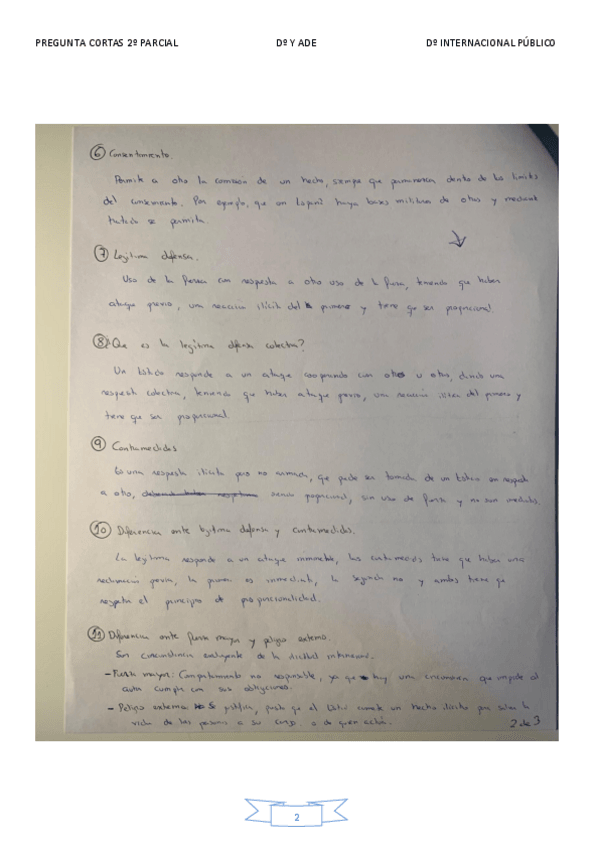 PREGUNTA CORTAS 2º PARCIAL Dº Y ADE Dº INTERNACIONAL PÚBLICO
6 Consentimiento.
Permite a otro la comisión de un hecho, siempre que permanezca dentro de los límites
del consentimiento. Por ejemplo, que en España haya bases militares de otros y mediante
tratado se permita.
7 Legítima defensa.
Uso de la fuerza con respuesta a otro uso de la fuerza, teniendo que haber
ataque previo, una reacción ilícita del primero y tiene que ser proporcional.
8 ¿Que es la legítima defensa colectiva?
Un Estado responde a un ataque cooperando con otro u otros, dando una
respuesta colectiva, teniendo que haber ataque previo, una reacción ilícita del primero y
tiene que ser proporcional.
9 Contramedidas
Es una respuesta ilícita pero no armada, que puede ser tomada de un Estado en respuesta
a otro, siendo proporcional, sin uso de fuerza y no son
10 Diferencia entre legítima defensa y contramedidas.
La legítima responde a un ataque inminente, las contramedidas tiene que haber una
reclamación previa, la primera es inmediata, la segunda no y ambas tiene que
respetar el principio de proporcionalidad.
11 Diferencia entre fuerza mayor y peligro extremo.
Son circunstancias excluyente de la ilicitud internacional.
- Fuerza mayor: Comportamiento no responsable, ya que hay una circunstancia que impide al
autor cumplir con sus obligaciones.
- Peligro extremo: Se justifica, puesto que el Estado comete un hecho ilícito para salvar la
vida de las personas a su cargo o de quien actúa.
2 de 3
2